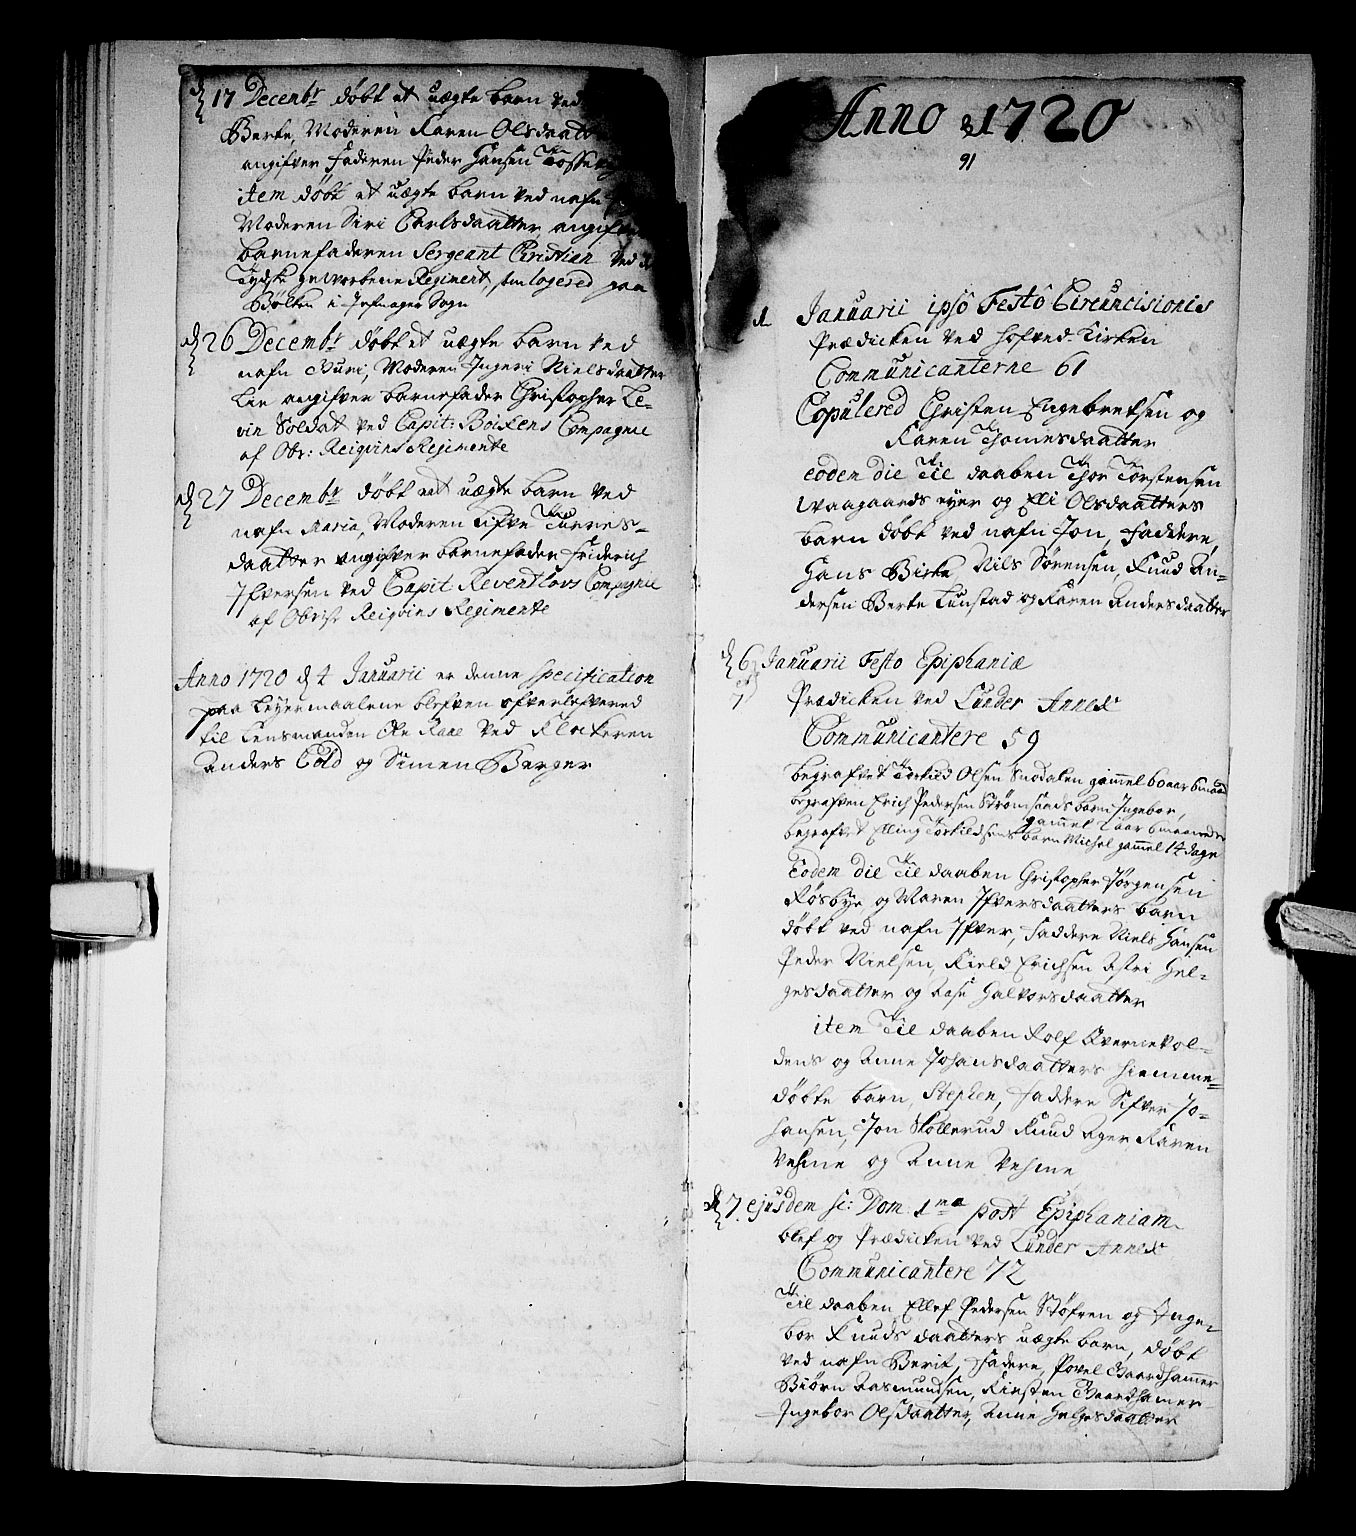 17 Decembr døbt et uægte barn ved
Berte, Moderen Karen Olsdaatt
angifver Faderen Peder Hansen
item døbt et uægte barn ved nafn
Moderen Siri Carlsdaatter, angifver
barnefaderen Sergeant Christian ved
Tydske gevorbene Regiment, som logered paa
Bølke i Sogn
26 Decembr døbt et uægte barn ved
nafn Guri, Moderen Ingeri Nielsdaatter
Lie angifver barnefader Christopher Le-
vin Soldat ved Capit: Compagnie
af Obr: Reigvins Regimente
27 Decembr døbt et uægte barn ved
nafn Maria, Moderen Sifve Turres-
daatter angifver barnefader Friderich
Ifversen ved Capit Reventlovs Compagnie
af Obrist Reigvins Regimente
Anno 1720 d 4 Januarii er denne specification
paa Leyermaalene blefven ofverlefvered
til Lensmanden Ole ved Klokkeren
Anders Cold og Simen Berger
Anno 1720
91
1 Januarii ipso Festo Circumcisionis
Prædicken ved Hofved-Kirken
Communicanterne 61
Copulered Christen Engebretsen og
Karen Thomesdaatter
eodem die Til daaben Thor Torstensen
Waagaards eyer og Elli Olsdaatters
barn døbt ved nafn Jon, Faddere,
Hans Birke Nils Sørensen, Knud An-
dersen Berte Tunstad og Karen Andersdaatter
d 6 Januarii Festo Epiphaniæ
7 Prædicken ved Lunder Annex
Communicantere 59
begrafvet Torkild Olsen Snodalen gammel 60 aar 6 maan
begrafven Erich Pedersen Strømsaads barn Ingebor,
gammel 2 aar 6 maaneder
begrafvet Elling Torkildsens barn Michel gammel 14 dage
Eodem die Til daaben Christopher Jørgensen
Røsbye og Maren Ifversdaatters barn
døbt ved nafn Ifver, Faddere Niels Hansen
Peder Nielsen, Kield Erichsen Astri Hel-
gesdaatter og Aase Halvorsdaatter
item Til daaben Rolf Qvernevol-
dens og Anne Johansdaatters hiemme-
døbte barn, Stephen, Faddere Sifver Jo-
hansen, Jon Skollerud Knud Ager Karen
Vesme og Anne Vesme
d 7. ejusdem sc: Dom 1ma post Epiphaniam
blef og Prædicken ved Lunder Annex
Communicantere 72
Til daaben Ellef Pedersen Støfren og Inge-
bor Knuds daatters uægte barn, døbt
ved nafn Berit, Fadere, Povel Gaardhammer
Biørn Asmundsen, Kirsten Gaardhamer
Ingebor Olsdaatter, Anne Helgesdaatter